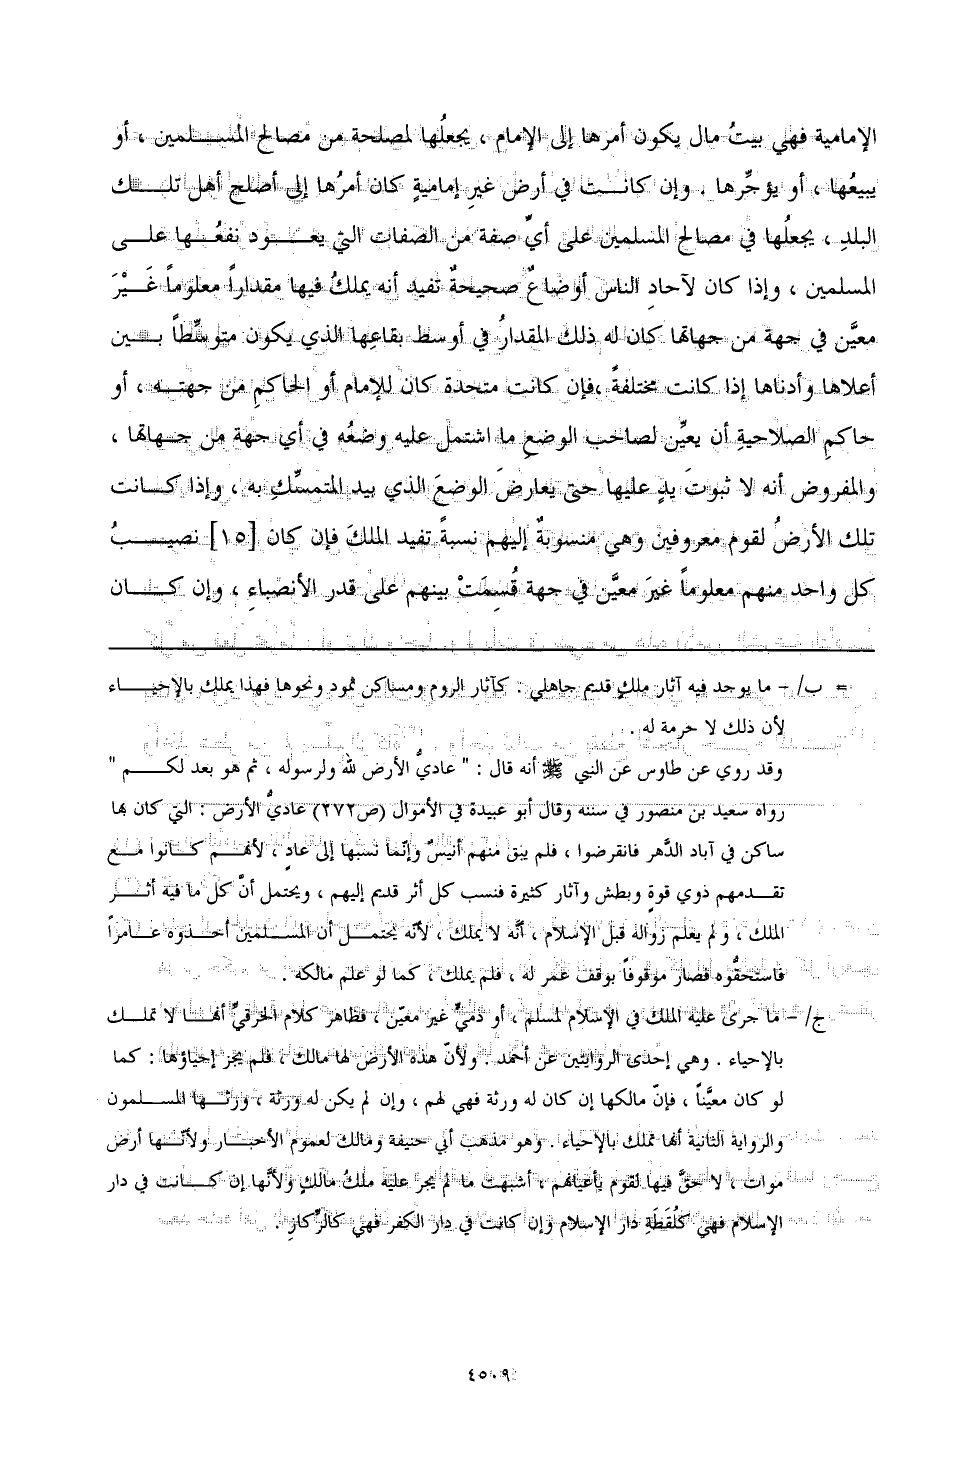 الإمامية فهي بيتُ مال يكون أمرها إلى الإمام ، يجعلُها لمصلحة من مصالح المسلمين ، أو
يبيعُها ، أو يؤجِّرها . وإن كانت في أرض غيرِ إماميةٍ كان أمرُها إلى أصلح أهل تلك
البلدِ ، يجعلُها في مصالح المسلمين على أيِّ صفة من الصفات التي يعود نفعُها على
المسلمين ، وإذا كان لآحادِ الناس أوضاعٌ صحيحةٌ تفيد أنه يملكُ فيها مقداراً معلوماً غَيْرَ
معيَّن في جهة من جهاتها كان له ذلك المقدارُ في أوسط بقاعِها الذي يكون متوسِّطاً بين
أعلاها وأدناها إذا كانت مختلفةً ،فإن كانت متحدة كان للإمام أو الحاكمِ من جهته ، أو
حاكمِ الصلاحيةِ أن يعيِّن لصاحب الوضعِ ما اشتمل عليه وضعُه في أي جهة من جهاتها ،
والمفروض أنه لا ثبوتَ يدٍ عليها حتى يعارضَ الوضعَ الذي بيد المتمسِّكِ به ، وإذا كانت
تلك الأرضُ لقوم معروفين وهي منسوبةٌ إليهم نسبةً تفيد الملكَ فإن كان [١٥] نصيبُ
كل واحد منهم معلوماً غيرَ معيَّن في جهة قُسِمَتْ بينهم على قدر الأنصباءِ ، وإن كان
= ب/ - ما يوجد فيه آثار ملكٍ قديم جاهلي : كآثار الروم ومساكن ثمود ونحوها فهذا يملك بالإحياء
لأن ذلك لا حرمة له .
وقد روي عن طاوس عن النبي ﷺ أنه قال : " عاديُّ الأرض لله ولرسوله ، ثم هو بعد لكم "
رواه سعيد بن منصور في سننه وقال أبو عبيدة في الأموال (ص٢٧٢) عاديُّ الأرض : التي كان بها
ساكن في آباد الدَّهر فانقرضوا ، فلم يبق منهم أنيسٌ وإنّما نسبها إلى عادٍ ، لأنهم كانوا مع
تقدمهم ذوي قوةٍ وبطش وآثار كثيرة فنسب كل أثر قديم إليهم ، ويحتمل أنّ كل ما فيه أثر
الملك ، ولم يعلم زواله قبل الإسلام ، أنَّه لا يملك ، لأنّه يحتمل أن المسلمين أخذوه عامراً
فاستحقُّوه فصار موقوفاً بوقف عمر له ، فلم يملك ، كما لو علم مالكه .
ج/ - ما جرى عليه الملك في الإسلام لمسلم ، أو ذميٍّ غير معيّن ، فظاهر كلام الخرقيِّ أنها لا تملك
بالإحياء . وهي إحدى الروايتين عن أحمد . ولأنّ هذه الأرض لها مالك ، فلم يجز إحياؤها : كما
لو كان معيَّناً ، فإنّ مالكها إن كان له ورثة فهي لهم ، وإن لم يكن له ورثة ، ورثها المسلمون
والرواية الثانية أنها تملك بالإحياء . وهو مذهب أبي حنيفة ومالك لعموم الأخبار ولأنّها أرض
موات ، لا حقَّ فيها لقوم بأعيانهم ، أشبهت ما لم يجر عليه ملكُ مالكٍ ولأنَّها إن كانت في دار
الإسلام فهي كلُقَطَةِ دار الإسلام وإن كانت في دار الكفر فهي كالرِّكازِ .
٤٥٠٩